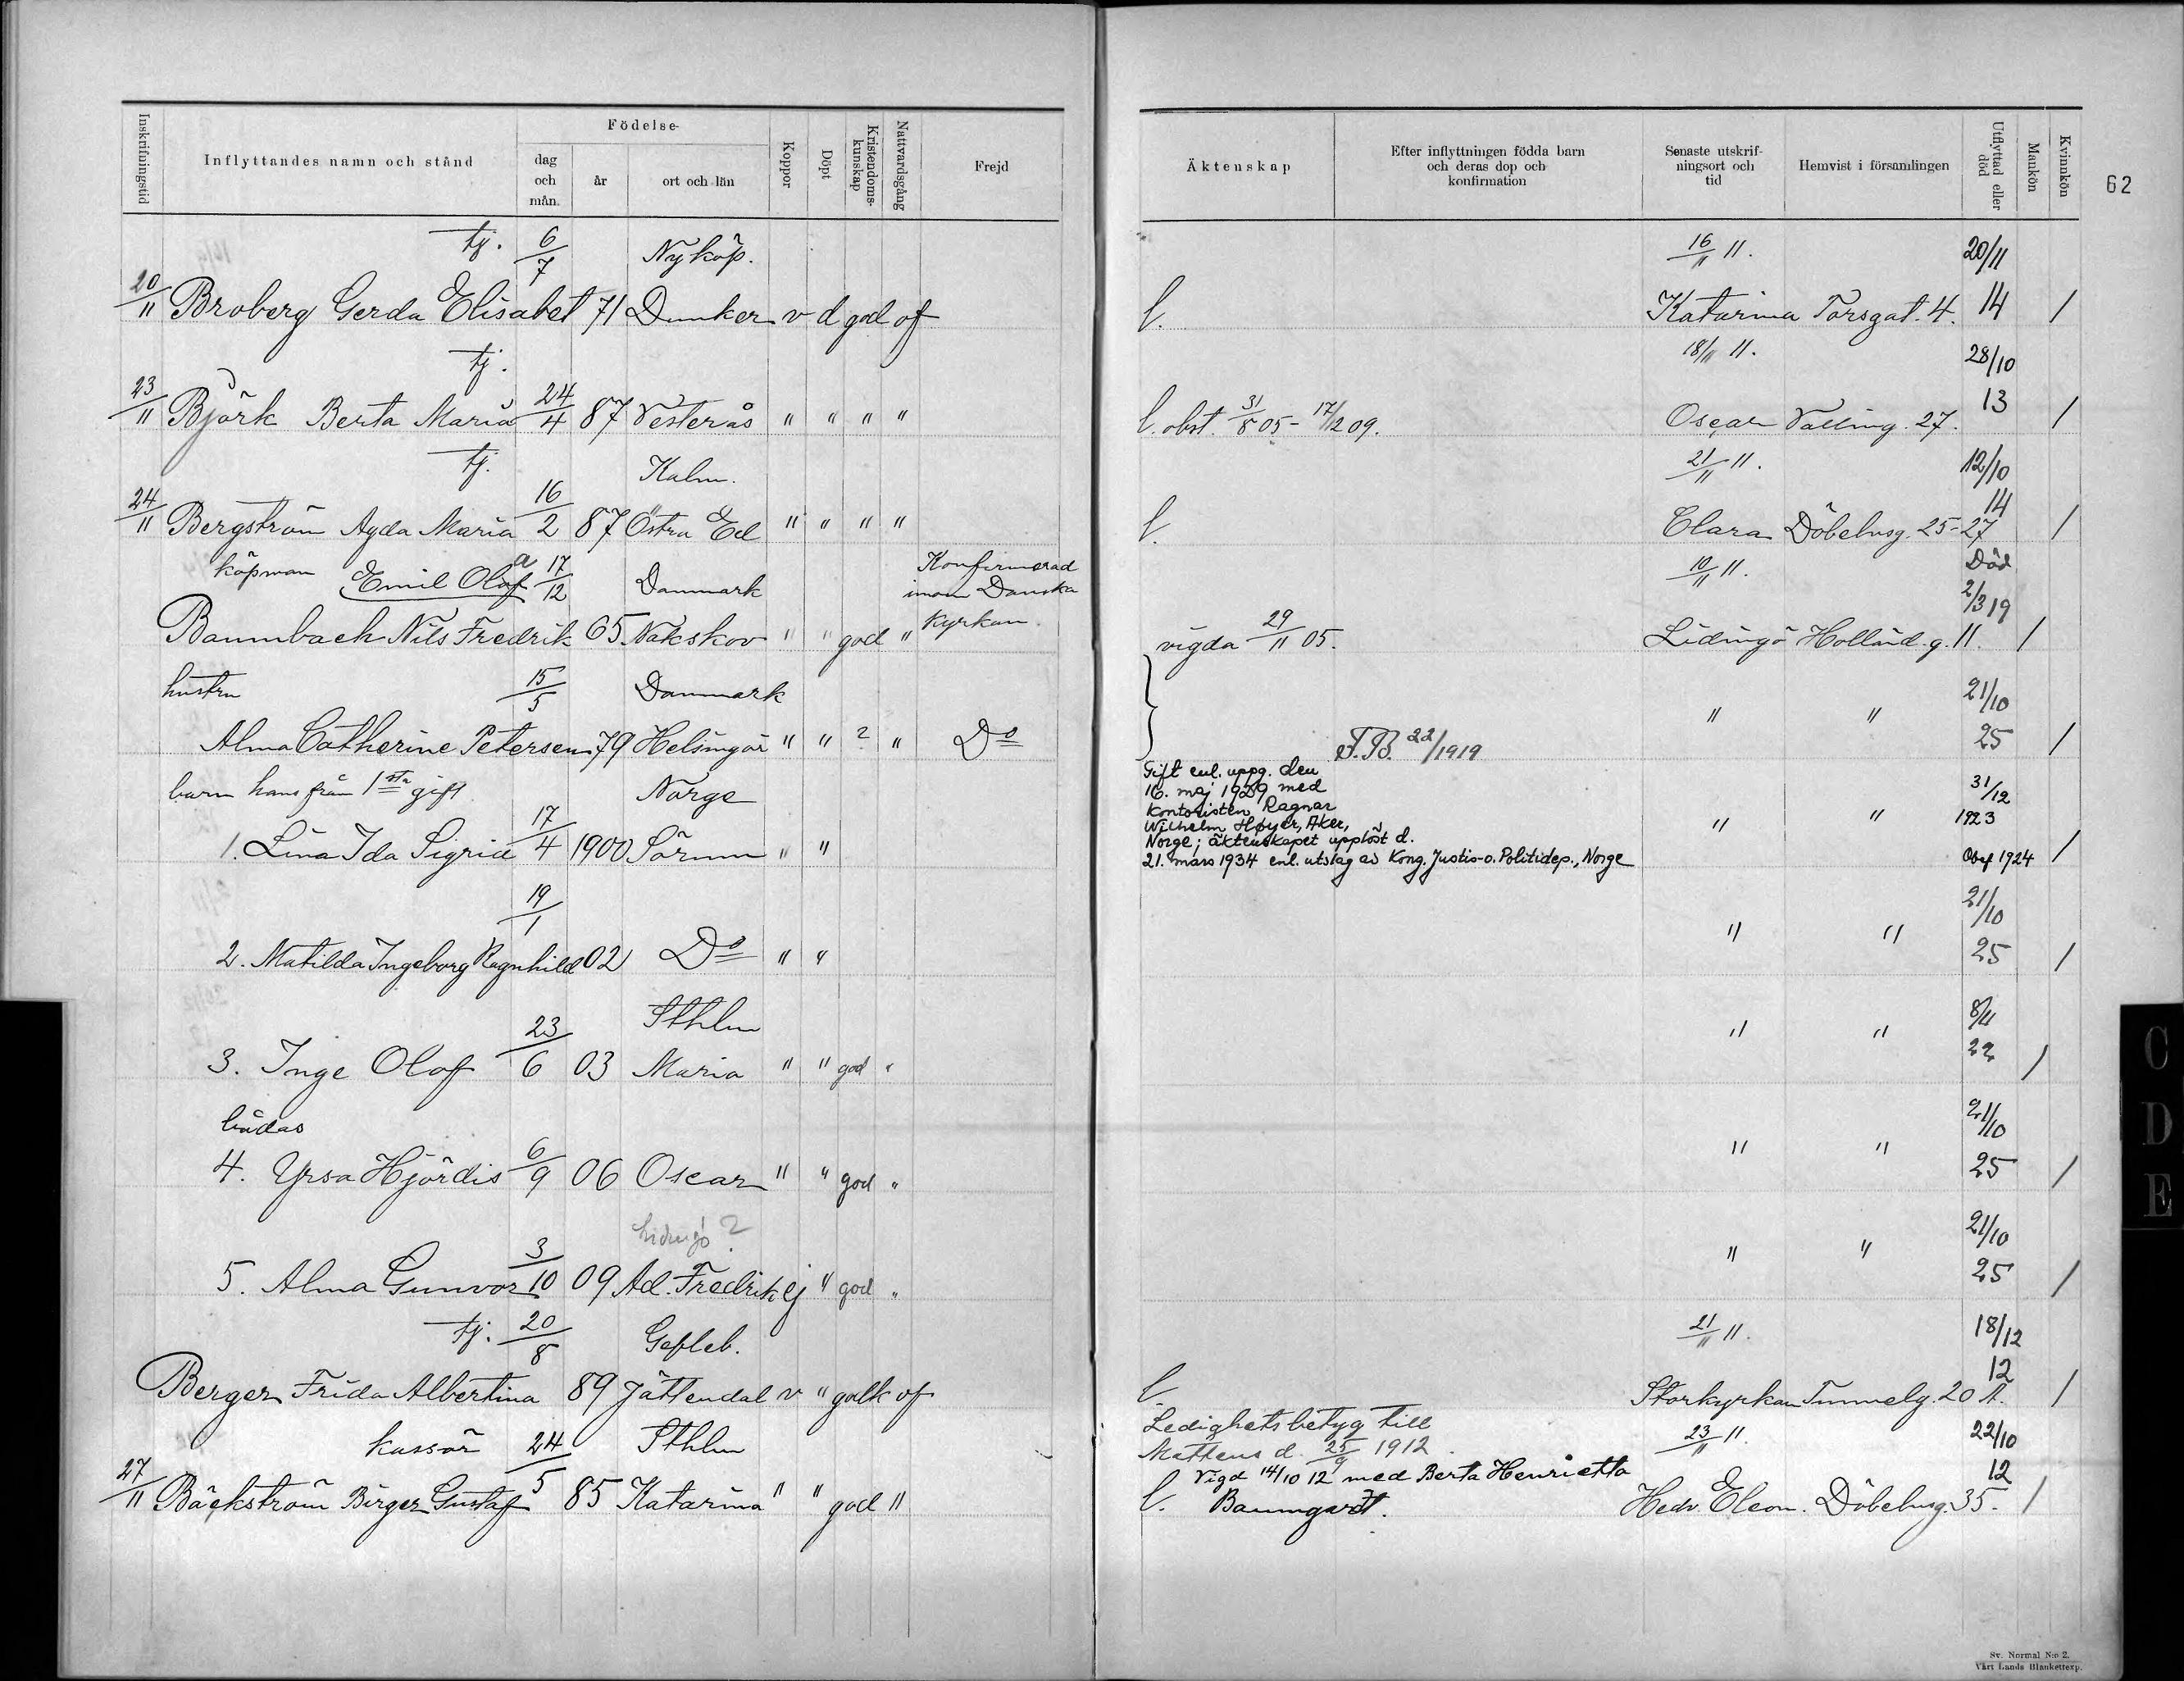 Inskrifningstid
Inflyttandes namn och stånd
Födelse-
dag och mån.
år
ort och län
Koppor
Döpt
Kristendoms-kunskap
Nattvardsgång
Frejd
Äktenskap
Efter inflyttningen födda barn och deras dop och konfirmation
Senaste utskrif-ningsort och tid
Hemvist i församlingen
Utflyttad eller död
Mankön
Kvinnkön
62
tj. 6/7 Nyköp. 16/11 11. 20/11
20/11 Broberg Gerda Elisabet 71 Dunker v d god of l. Katarina Torsgat. 4. 14 /
tj. 18/11 11. 28/10
23/11 Björk Berta Maria 24/4 87 Vesterås " " " " l. obst. 31/8 05 - 17/2 09. Oscar Valling. 27. 13 /
tj. Kalm. 21/11 11. 12/10
24/11 Bergström Agda Maria 16/2 87 Östra Ed " " " " l. Clara Döbelnsg. 25-27 14 /
köpman Emil Olaf 17/12 Danmark Konfirmerad inom Danska 10/11 11. Död 2/3 19
Baumbach Nils Fredrik 65 Nakskov " " god " kyrkan. vigda 29/11 05. Lidingö Holländ.g. 11. /
hustru 15/5 Danmark 21/10
Alma Catherine Petersen 79 Helsingör " " ? " Do F.B. 22/1919 " " 25 /
barn hans från 1sta gift Norge
Gift enl. uppg. den
16. maj 1929 med
kontoristen Ragnar
Wilhelm Høyer, Aker,
Norge; äktenskapet upplöst d.
21. mars 1934 enl. utslag av Kong. Justis-o. Politidep., Norge
1. Lina Ida Sigrid 17/4 1900 Sörum " " " " 31/12 1923 Obef 1924 /
19/1 21/10
2. Matilda Ingeborg Ragnhild 02 Do " " " " 25 /
23 Sthlm 8/11
3. Inge Olof 6 03 Maria " " god " " " 22 /
bådas 21/10
4. Yrsa Hjördis 6/9 06 Oscar " " god " " " 25 /
Lidingö? 21/10
5. Alma Gunvor 3/10 09 Ad. Fredrik ej " god " " " 25 /
tj. 20/8 Gefleb. 21/11 11. 18/12
Berger Frida Albertina 89 Jättendal v " godk of l. Storkyrkan Tunnelg. 20 A. 12 /
kassör 24/5 Sthlm Ledighetsbetyg till
Matteus d. 25/9 1912. 23/11 11. 22/10
Vigd 14/10 12 med Berta Henrietta
27/11 Bäckström Birger Gustaf 85 Katarina " " god " l. Baumgardt. Hedv. Eleon. Döbelnsg. 35. 12 /
C
D
E
Sv. Normal N:o 2.
Vårt Lands Blankettexp.